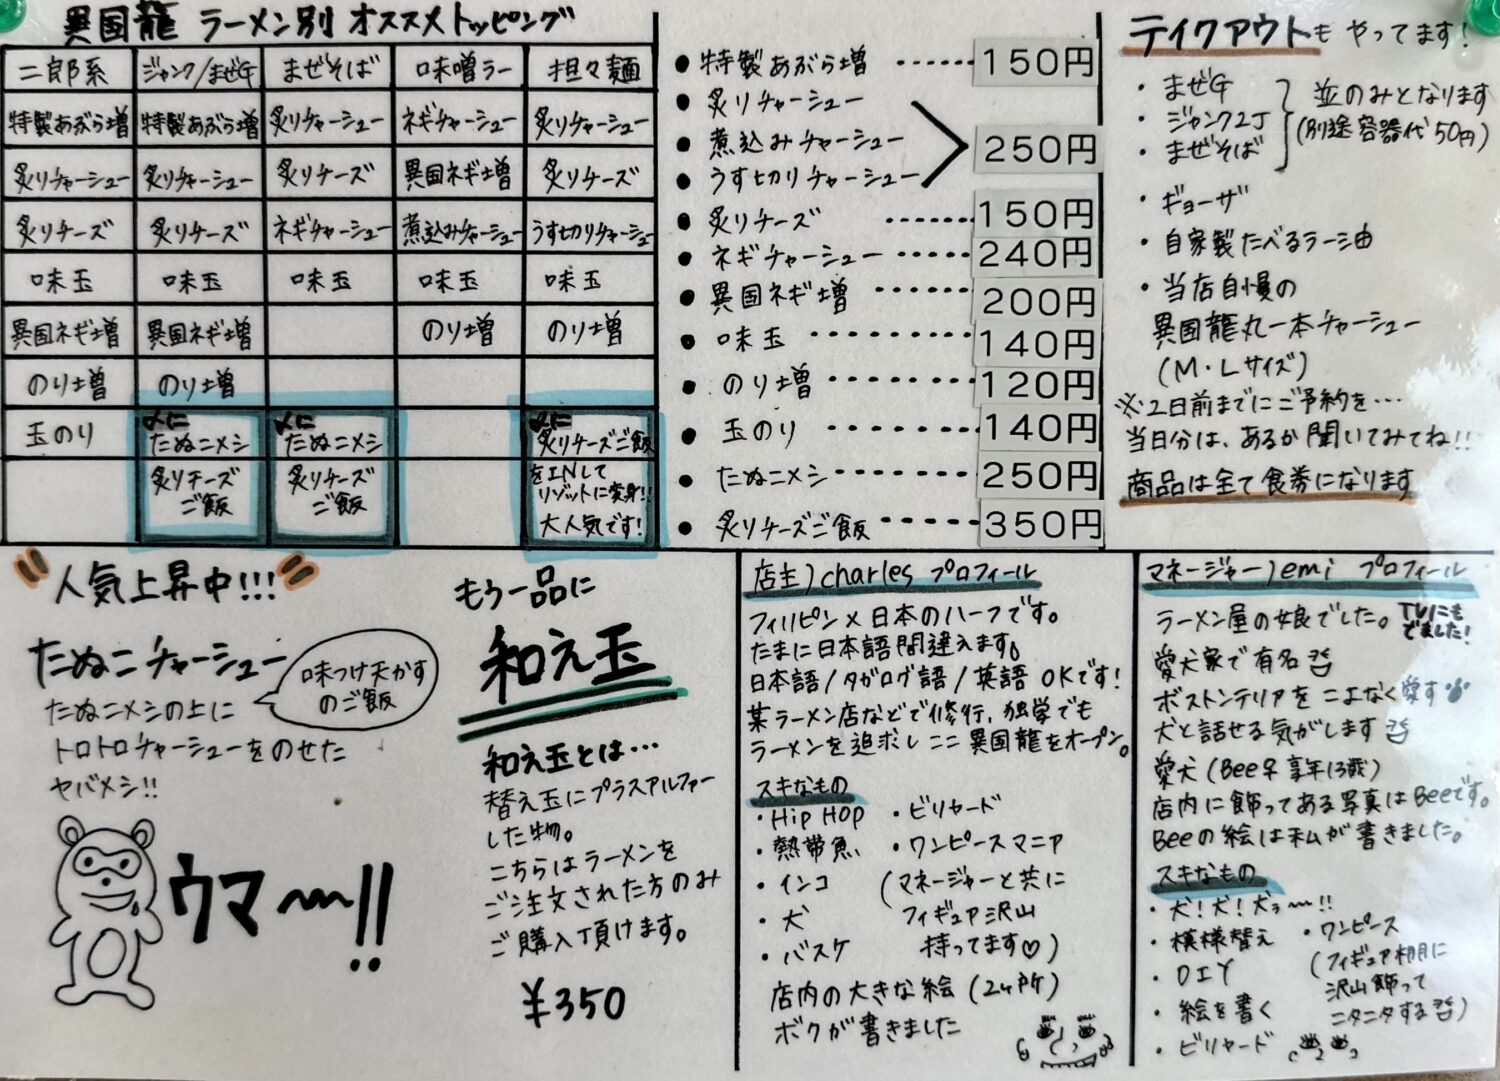 異国龍 ラーメン別 オススメトッピング
二郎系 ジャンク/まぜG まぜそば 味噌ラー 担々麺
特製あぶら増 特製あぶら増 炙りチャーシュー ネギチャーシュー 炙りチャーシュー
炙りチャーシュー 炙りチャーシュー 炙りチーズ 異国ネギ増 炙りチーズ
炙りチーズ 炙りチーズ ネギチャーシュー 煮込みチャーシュー うす切りチャーシュー
味玉 味玉 味玉 味玉 味玉
異国ネギ増 異国ネギ増 のり増 のり増
のり増 のり増
玉のり 〆に 〆に 〆に
たぬこメシ たぬこメシ 炙りチーズご飯
炙りチーズ 炙りチーズ をINして
ご飯 ご飯 リゾットに変身!!
大人気です!
● 特製あぶら増 ・・・・・・ 150円
● 炙りチャーシュー
● 煮込みチャーシュー 250円
● うす切りチャーシュー
● 炙りチーズ ・・・・・・ 150円
● ネギチャーシュー ・・・・・ 240円
● 異国ネギ増 ・・・・・・・ 200円
● 味玉 ・・・・・・・・・ 140円
● のり増 ・・・・・・・・ 120円
● 玉のり ・・・・・・・・ 140円
● たぬこメシ ・・・・・・・ 250円
● 炙りチーズご飯 ・・・・・ 350円
テイクアウトも やってます!
・まぜG
・ジャンク2J
・まぜそば
並のみとなります
(別途容器代50円)
・ギョーザ
・自家製たべるラー油
・当店自慢の
異国龍丸一本チャーシュー
(M・Lサイズ)
※2日前までにご予約を…
当日分は、あるか聞いてみてね!!
商品は全て食券になります
人気上昇中!!!
たぬこチャーシュー
味つけ天かす
のご飯
たぬこメシの上に
トロトロチャーシューをのせた
ヤバメシ!!
ウマ〜!!
もう一品に
和え玉
和え玉とは…
替え玉にプラスアルファー
した物。
こちらはラーメンを
ご注文された方のみ
ご購入頂けます。
¥350
店主)charles プロフィール
フィリピン×日本のハーフです。
たまに日本語間違えます。
日本語/タガログ語/英語 OKです!
某ラーメン店などで修行、独学でも
ラーメンを追求しここ異国龍をオープン。
スキなもの
・Hip HOP ・ビリヤード
・熱帯魚 ・ワンピースマニア
・インコ (マネージャーと共に
・犬 フィギュア沢山
・バスケ 持ってます♡)
店内の大きな絵(2ヶ所)
ボクが書きました
マネージャー)emi プロフィール
ラーメン屋の娘でした。 TVにも
でました!
愛犬家で有名
ボストンテリアをこよなく愛す
犬と話せる気がします
愛犬(Bee早享年13歳)
店内に飾ってある写真はBeeです。
Beeの絵は私が書きました。
スキなもの
・犬!犬!犬ぅ〜!!
・模様替え ・ワンピース
・DIY (フィギュア棚に
・絵を書く 沢山飾って
・ビリヤード ニタニタする)